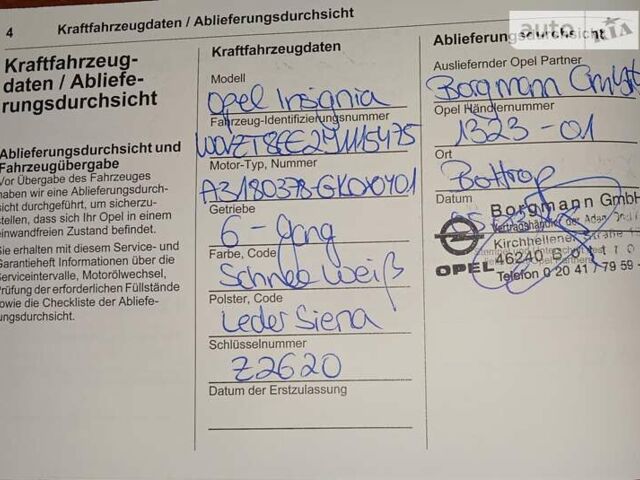 4 Kraftfahrzeugdaten / Ablieferungsdurchsicht
Kraftfahrzeug-
daten / Abliefe-
rungsdurchsicht
Ablieferungsdurchsicht und
Fahrzeugübergabe
Vor Übergabe des Fahrzeuges
haben wir eine Ablieferungsdurch-
sicht durchgeführt, um sicherzu-
stellen, dass sich Ihr Opel in einem
einwandfreien Zustand befindet.
Sie erhalten mit diesem Service- und
Garantieheft Informationen über die
Serviceintervalle, Motorölwechsel,
Prüfung der erforderlichen Füllstände
sowie die Checkliste der Abliefe-
rungsdurchsicht.
Kraftfahrzeugdaten
Modell
Opel Insignia
Fahrzeug-Identifizierungsnummer
Motor-Typ, Nummer
Getriebe
6-Gang
Farbe, Code
Schnee Weiß
Polster, Code
Leder Siena
Schlüsselnummer
Z2620
Datum der Erstzulassung
Ablieferungsdurchsicht
Ausliefernder Opel Partner
Borgmann GmbH
Opel Händlernummer
1323-01
Ort
Bottrop
Datum
Borgmann GmbH
Vertragshändler der Adam Opel
Kirchhellener Straße
46240 Bottrop
Telefon 0 20 41 / 79 59 -
OPEL
auto RIA